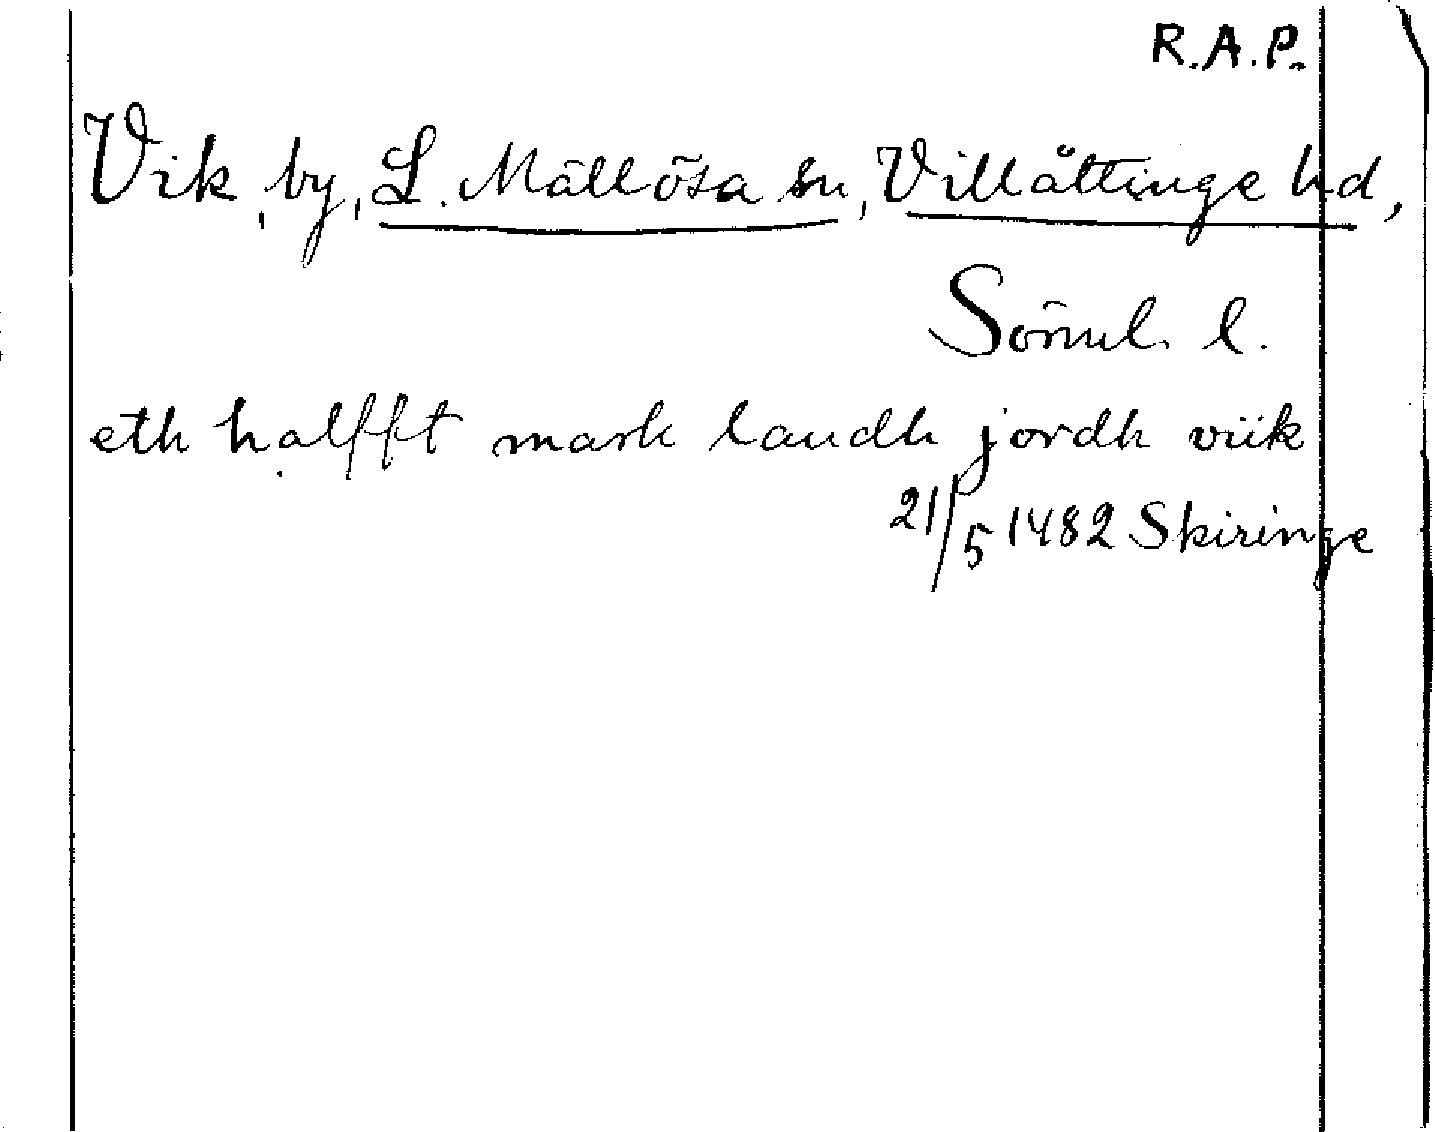 R.A.P.
Vik, by, L. Mällösa sn, Villåttinge hd,
Sörml. l.
eth halfft mark landh jordh viik
21/5 1482 Skiringe